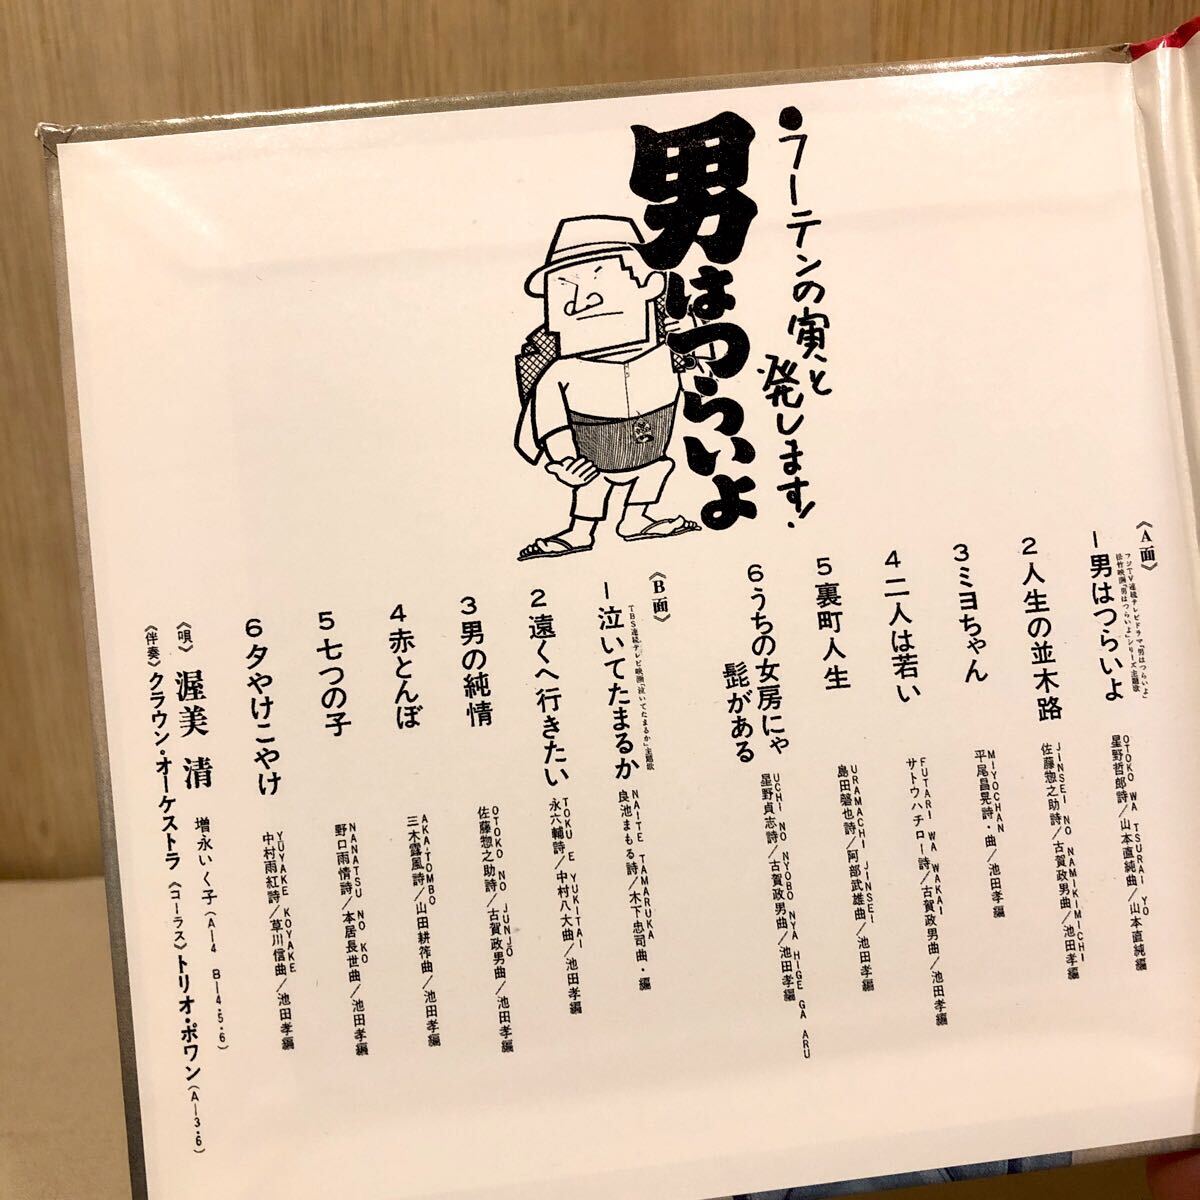 ●フーテンの寅と
発します!
男はつらいよ
《A面》
1 男はつらいよ
フジTV連続テレビドラマ「男はつらいよ」
松竹映画「男はつらいよ」シリーズ主題歌
OTOKO WA TSURAI YO
星野哲郎詩/山本直純曲/山本直純編
2 人生の並木路
JINSEI NO NAMIKIMICHI
佐藤惣之助詩/古賀政男曲/池田孝編
3 ミヨちゃん
MIYOCHAN
平尾昌晃詩・曲/池田孝編
4 二人は若い
FUTARI WA WAKAI
サトウハチロー詩/古賀政男曲/池田孝編
5 裏町人生
URAMACHI JINSEI
島田磬也詩/阿部武雄曲/池田孝編
6 うちの女房にゃ
髭がある
UCHI NO NYOBO NYA HIGE GA ARU
星野貞志詩/古賀政男曲/池田孝編
《B面》
1 泣いてたまるか
TBS連続テレビ映画「泣いてたまるか」主題歌
NAITE TAMARUKA
良池まもる詩/木下忠司曲・編
2 遠くへ行きたい
TOKU E YUKITAI
永六輔詩/中村八大曲/池田孝編
3 男の純情
OTOKO NO JUNJO
佐藤惣之助詩/古賀政男曲/池田孝編
4 赤とんぼ
AKA-TOMBO
三木露風詩/山田耕筰曲/池田孝編
5 七つの子
NANATSU NO KO
野口雨情詩/本居長世曲/池田孝編
6 夕やけこやけ
YUYAKE KOYAKE
中村雨紅詩/草川信曲/池田孝編
《唄》渥美 清 増永いく子(A—4 B—4・5・6)
《伴奏》クラウン・オーケストラ《コーラス》トリオ・ポワン(A—3・6)